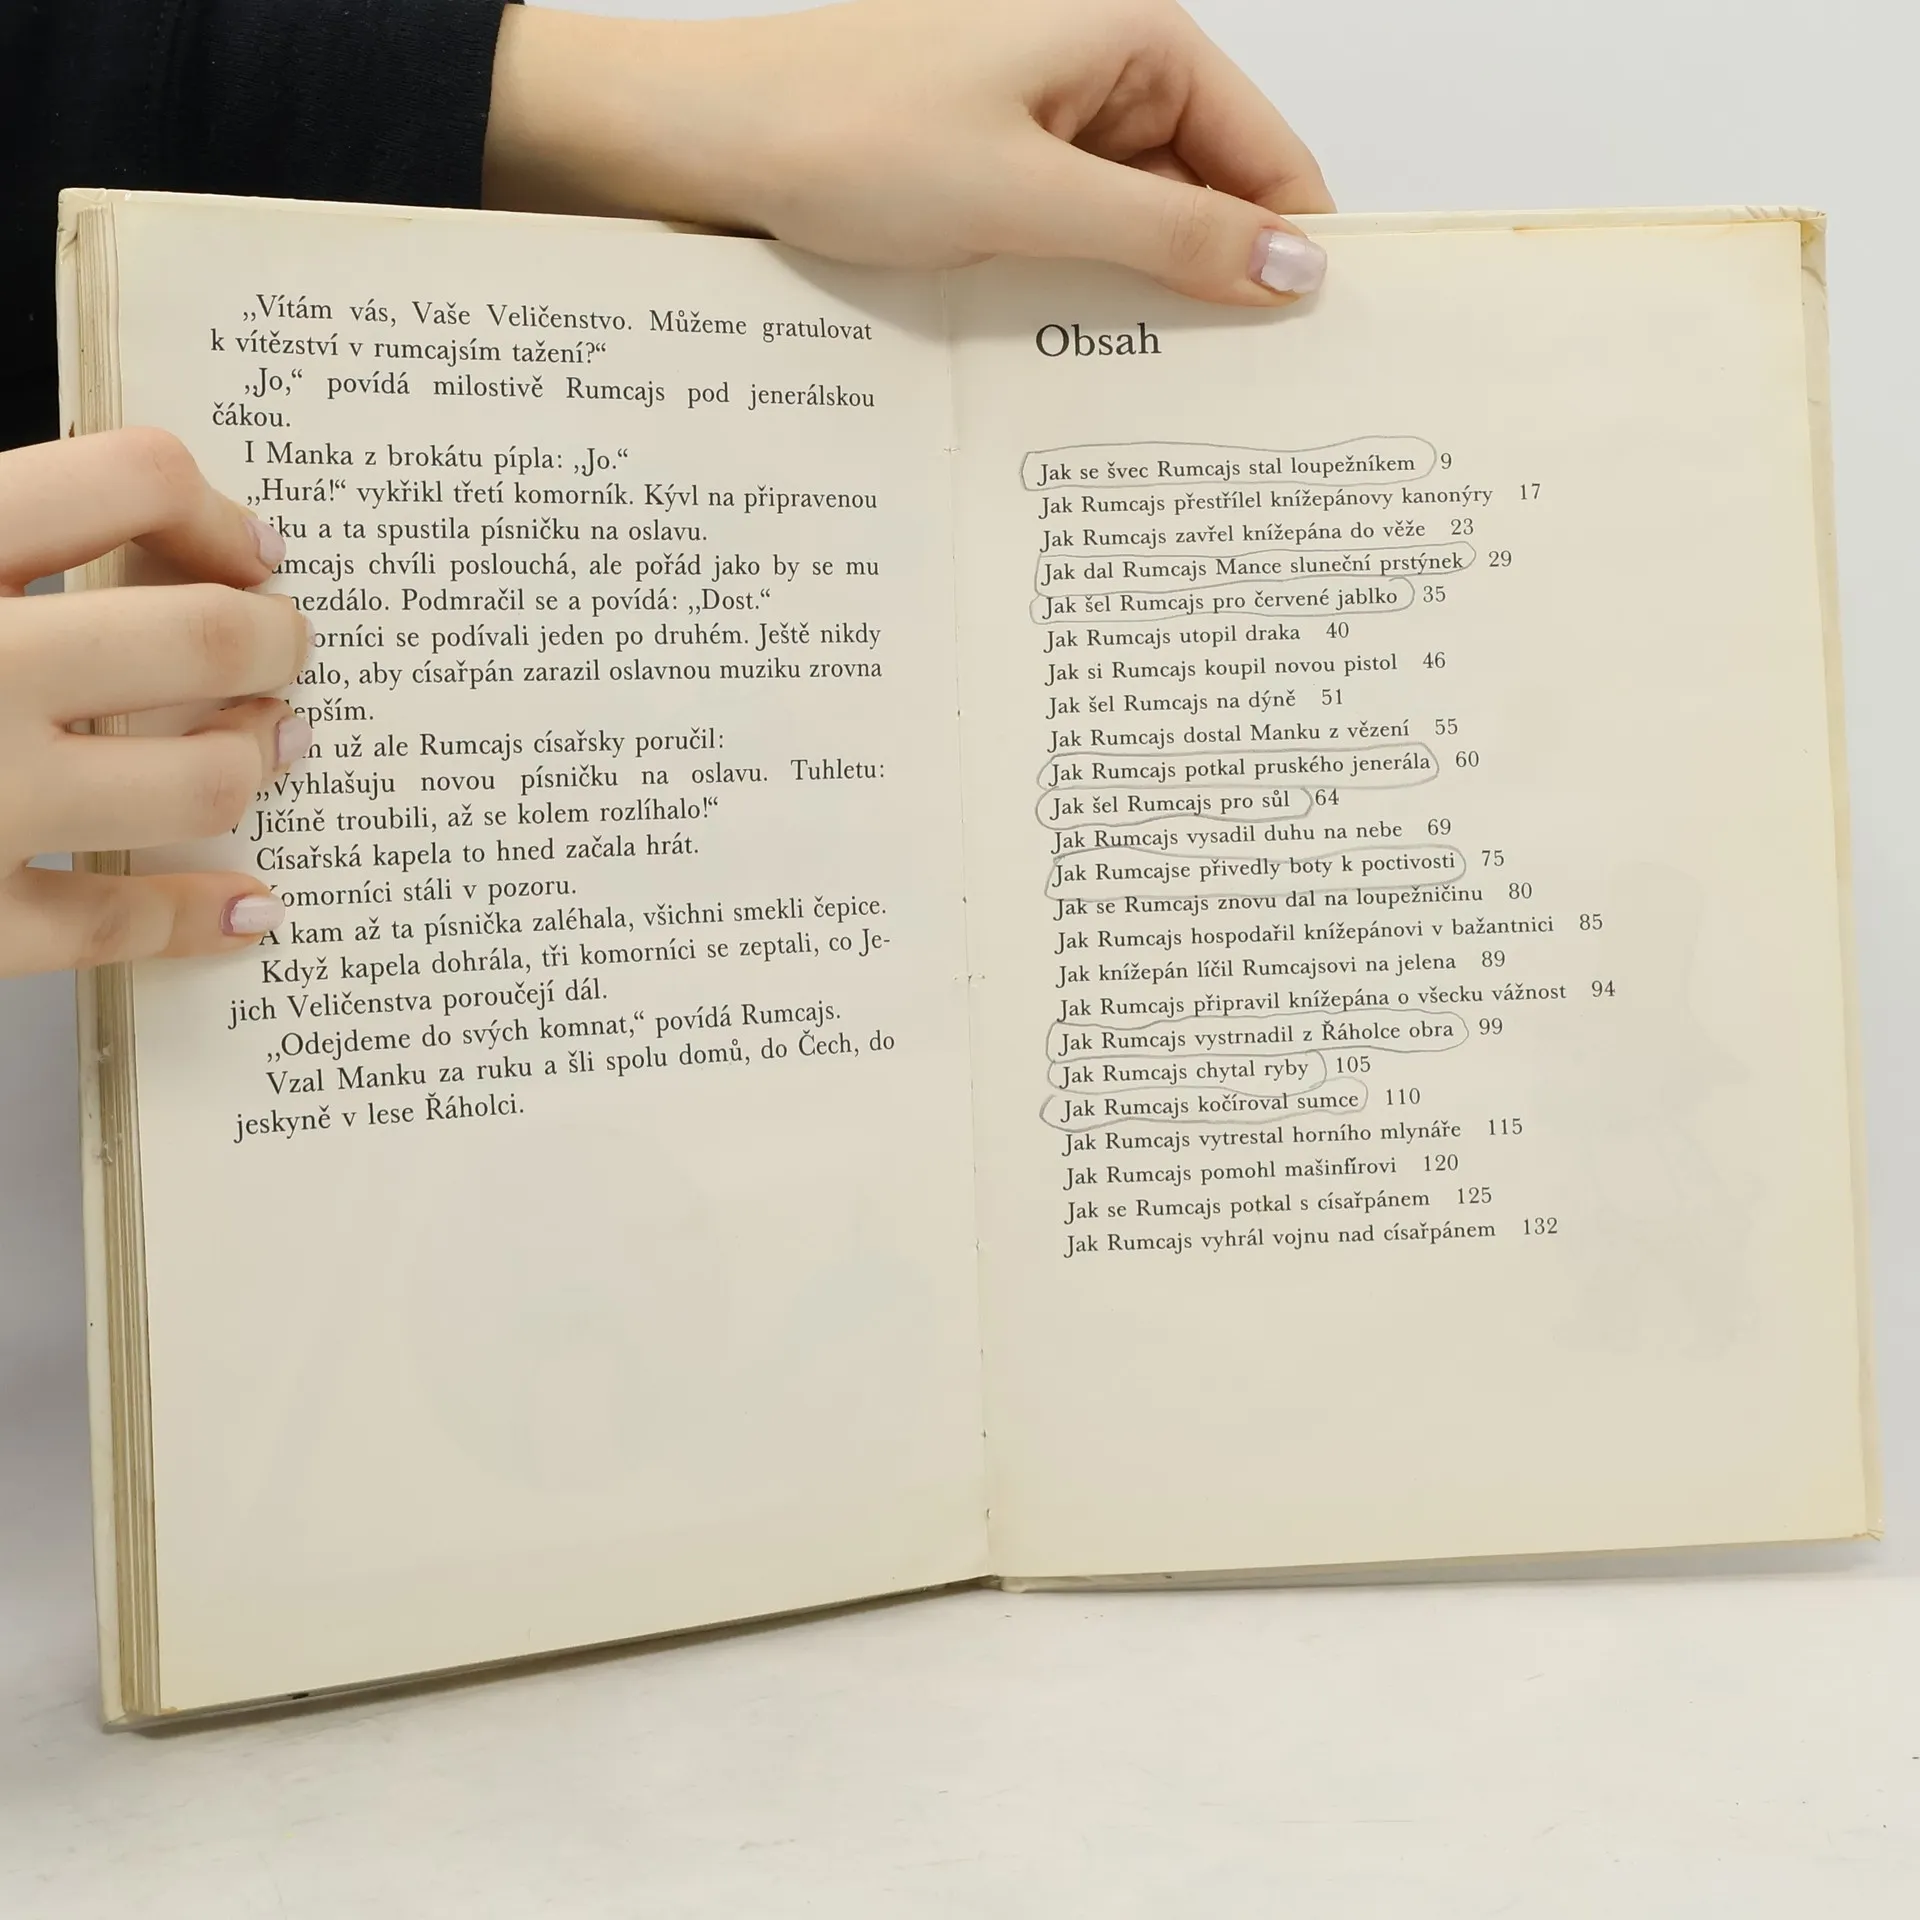 „Vítám vás, Vaše Veličenstvo. Můžeme gratulovat
k vítězství v rumcajsím tažení?“
„Jo,“ povídá milostivě Rumcajs pod jenerálskou
čákou.
I Manka z brokátu pípla: „Jo.“
„Hurá!“ vykřikl třetí komorník. Kývl na připravenou
a ta spustila písničku na oslavu.
chvíli poslouchá, ale pořád jako by se mu
Podmračil se a povídá: „Dost.“
se podívali jeden po druhém. Ještě nikdy
aby císařpán zarazil oslavnou muziku zrovna
už ale Rumcajs císařsky poručil:
„Vyhlašuju novou písničku na oslavu. Tuhletu:
V Jičíně troubili, až se kolem rozlíhalo!“
Císařská kapela to hned začala hrát.
Komorníci stáli v pozoru.
A kam až ta písnička zaléhala, všichni smekli čepice.
Když kapela dohrála, tři komorníci se zeptali, co Je-
jich Veličenstva poroučejí dál.
„Odejdeme do svých komnat,“ povídá Rumcajs.
Vzal Manku za ruku a šli spolu domů, do Čech, do
jeskyně v lese Řáholci.
Obsah
Jak se švec Rumcajs stal loupežníkem 9
Jak Rumcajs přestřílel knížepánovy kanonýry 17
Jak Rumcajs zavřel knížepána do věže 23
Jak dal Rumcajs Mance sluneční prstýnek 29
Jak šel Rumcajs pro červené jablko 35
Jak Rumcajs utopil draka 40
Jak si Rumcajs koupil novou pistol 46
Jak šel Rumcajs na dýně 51
Jak Rumcajs dostal Manku z vězení 55
Jak Rumcajs potkal pruského jenerála 60
Jak šel Rumcajs pro sůl 64
Jak Rumcajs vysadil duhu na nebe 69
Jak Rumcajse přivedly boty k poctivosti 75
Jak se Rumcajs znovu dal na loupežničinu 80
Jak Rumcajs hospodařil knížepánovi v bažantnici 85
Jak knížepán líčil Rumcajsovi na jelena 89
Jak Rumcajs připravil knížepána o všecku vážnost 94
Jak Rumcajs vystrnadil z Řáholce obra 99
Jak Rumcajs chytal ryby 105
Jak Rumcajs kočíroval sumce 110
Jak Rumcajs vytrestal horního mlynáře 115
Jak Rumcajs pomohl mašinfírovi 120
Jak se Rumcajs potkal s císařpánem 125
Jak Rumcajs vyhrál vojnu nad císařpánem 132